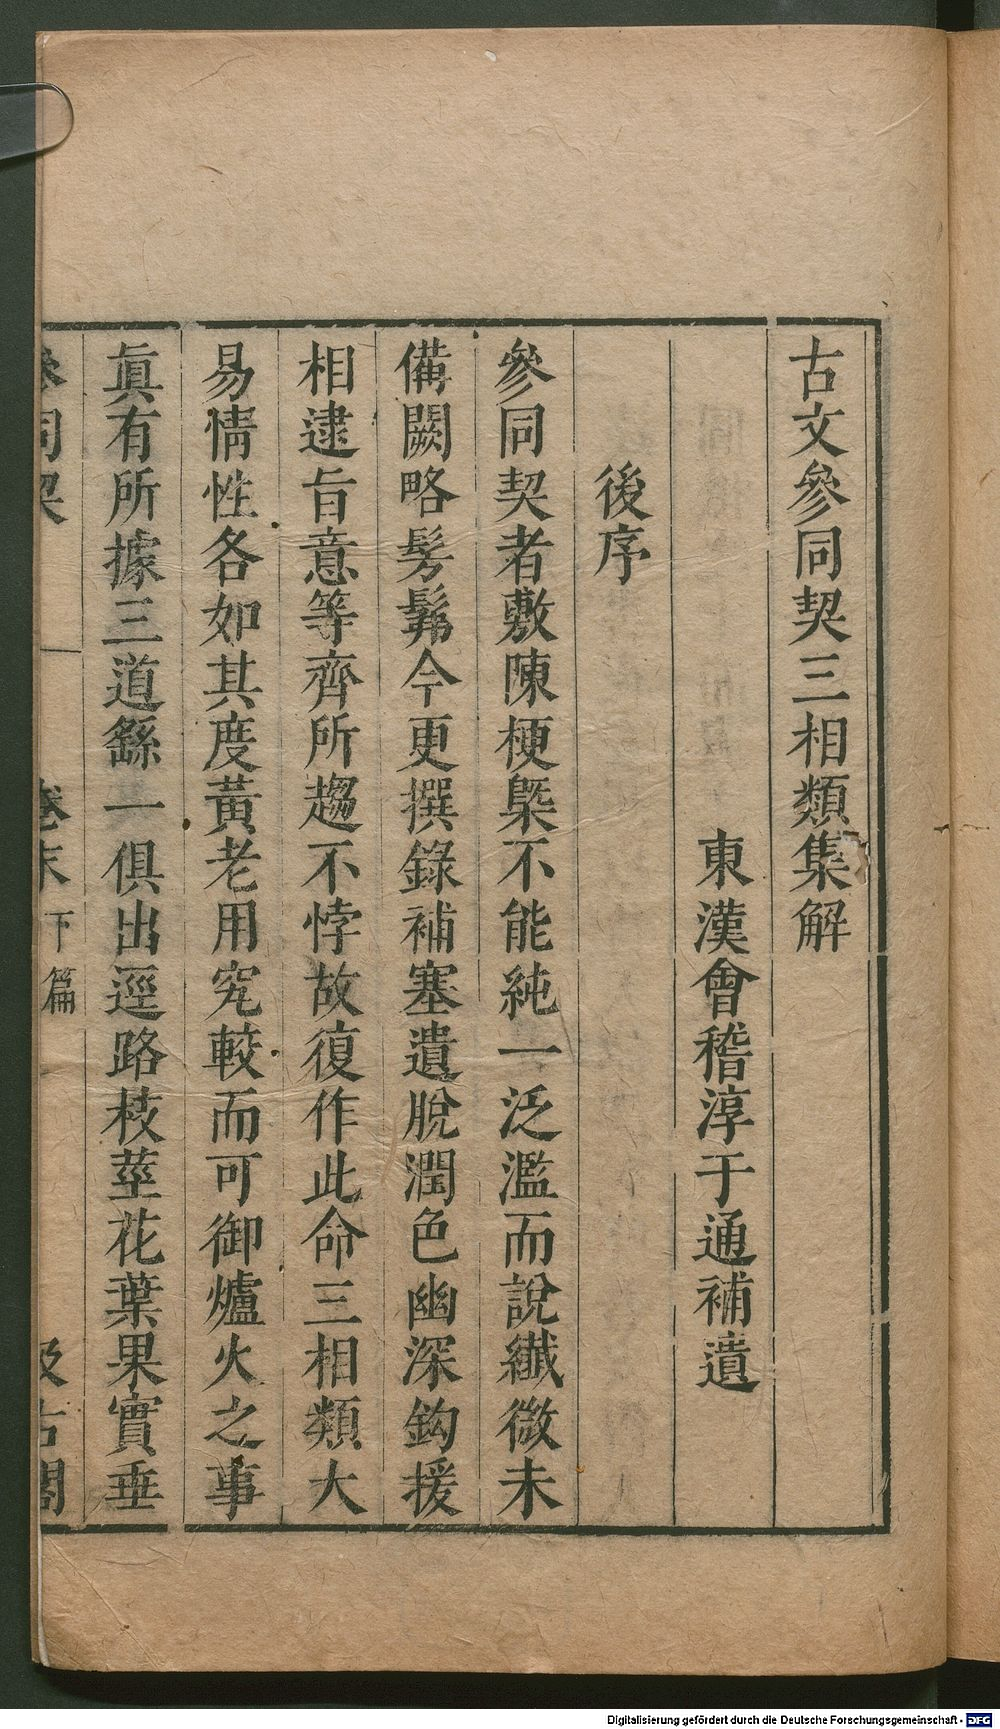 古文參同契三相類集解
東漢會稽淳于通補遺
後序
參同契者敷陳梗槩不能純一泛濫而說纖微未
備闕略髣髴今更撰錄補塞遺脫潤色幽深鈎援
相逮旨意等齊所趨不悖故復作此命三相類大
易情性各如其度黃老用究較而可御爐火之事
眞有所據三道繇一俱出逕路枝莖花葉果實垂
參同契 卷末 下篇 汲古閣
Digitalisierung gefördert durch die Deutsche Forschungsgemeinschaft - DFG